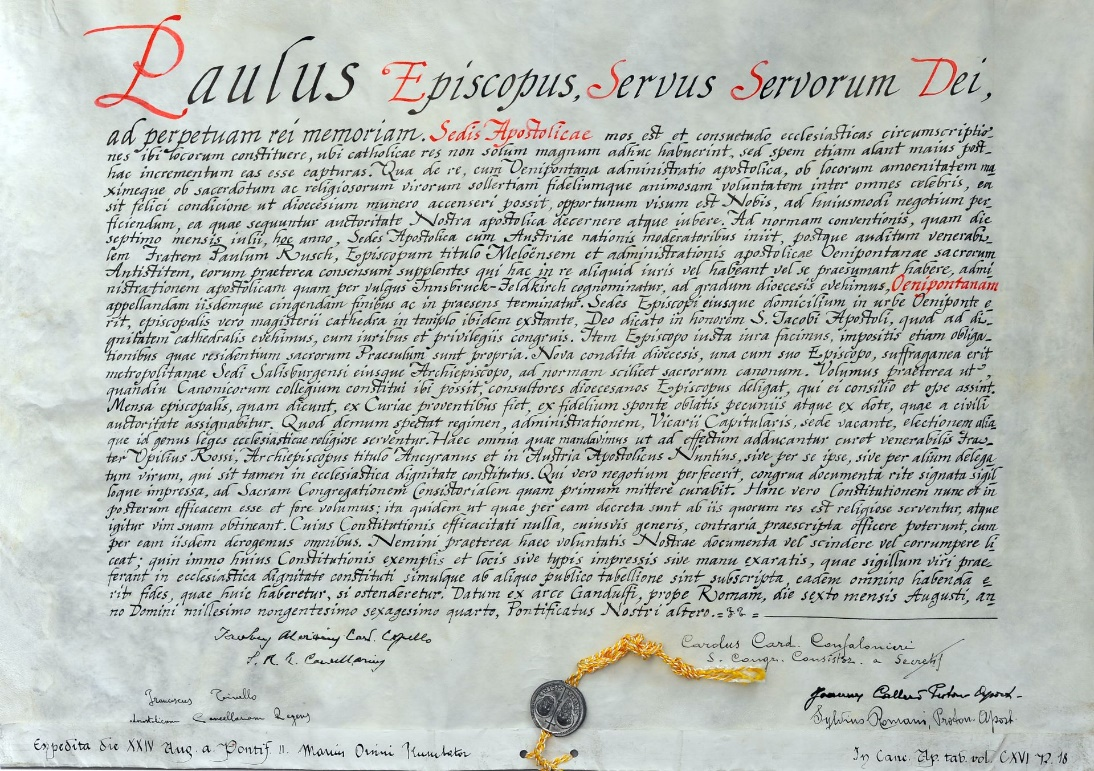 Paulus Episcopus, Servus Servorum Dei,
ad perpetuam rei memoriam. Sedis Apostolicae mos est et consuetudo ecclesiasticas circumscriptio-
nes ibi locorum constituere, ubi catholicae res non solum magnum adhuc habuerint, sed spem etiam alant maius post-
hac incrementum eas esse capturas. Qua de re, cum Oenipontana administratio apostolica, ob locorum amoenitatem ma-
ximeque ob sacerdotum ac religiosorum virorum sollertiam fideliumque animosam voluntatem inter omnes celebris, ea
sit felici condicione ut dioecesium munero accenseri possit, opportunum visum est Nobis, ad huiusmodi negotium per-
ficiendum, ea quae sequuntur auctoritate Nostra apostolica decernere atque iubere. Ad normam conventionis, quam die
septimo mensis iulii, hoc anno, Sedes Apostolica cum Austriae nationis moderatoribus iniit, postque auditum venerabi-
lem Fratrem Paulum Rusch, Episcopum titulo Meloënsem et administrationis apostolicae Oenipontanae sacrorum
Antistitem, eorum praeterea consensum supplentes qui hac in re aliquid iuris vel habeant vel se praesumant habere, admi
nistrationem apostolicam quam per vulgus Innsbruck-Feldkirch cognominatur, ad gradum dioecesis evehimus, Oenipontanam
appellandam iisdemque cingendam finibus ac in praesens terminatur. Sedes Episcopi eiusque domicilium in urbe Oeniponte e-
rit, episcopalis vero magisterii cathedra in templo ibidem exstante, Deo dicato in honorem S. Iacobi Apostoli, quod ad di-
gnitatem cathedralis evehimus, cum iuribus et privilegiis congruis. Item Episcopo iusta iura facimus, impositis etiam obliga-
tionibus quae residentum sacrorum Praesulum sunt propria. Nova condita dioecesis, una cum suo Episcopo, suffraganea erit
metropolitanae Sedi Salisburgensi eiusque Archiepiscopo, ad normam scilicet sacrorum canonum. Volumus praeterea ut,
quandiu Canonicorum collegium constitui ibi possit, consultores dioecesanos Episcopus deligat, qui ei consilio et ope assint.
Mensa episcopalis, quam dicunt, ex Curiae proventibus fiet, ex fidelium sponte oblatis pecuniis atque ex dote, quae a civili
auctoritate assignabitur. Quod demum spectat regimen, administrationem, Vicarii Capitularis, sede vacante, electionem alia
que id genus leges ecclesiasticae religiose serventur. Haec omnia quae mandavimus ut ad effectum adducantur curet venerabilis Fra-
ter Opilius Rossi, Archiepiscopus titulo Ancyranus et in Austria Apostolicus Nuntius, sive per se ipse, sive per alium delega
tum virum, qui sit tamen in ecclesiastica dignitate constitutus. Qui vero negotium perfecerit, congrua documenta rite signata sigil
loque impressa, ad Sacram Congregationem Consistorialem quam primum mittere curabit. Hanc vero Constitutionem nunc et in
posterum efficacem esse et fore volumus; ita quidem ut quae per eam decreta sunt ab iis quorum res est religiose serventur, atque
igitur vim suam obtineant. Cuius Constitutionis efficacitati nulla, cuiusvis generis, contraria praescripta officere poterunt, cum
per eam iisdem derogemus omnibus. Nemini praeterea haec voluntatis Nostrae documenta vel scindere vel corrumpere li
ceat, quin immo huius Constitutionis exemplis et locis sive typis impressis sive manu exaratis, quae sigillum viri prae-
ferant in ecclesiastica dignitate constituti simulque ab aliquo publico tabellione sint subscripta, eadem omnino habenda e
rit fides, quae huic haberetur, si ostenderetur. Datum ex arce Gandulfi, prope Romam, die sexto mensis Augusti, an-
no Domini millesimo nongentesimo sexagesimo quarto, Pontificatus Nostri altero.
Card. Copello
S. R. E. Cancellarius
Carolus Card. Confalonieri
S. Congr. Consistor. a Secretis
Franciscus Tinello
Cancellariam Regens
Proton. Apost.
Sylvius Romani, Proton. Apost.
Expedita die XXIV Aug. a. Pontif II.
In Canc. Ap. tab. vol. CXVI N. 18